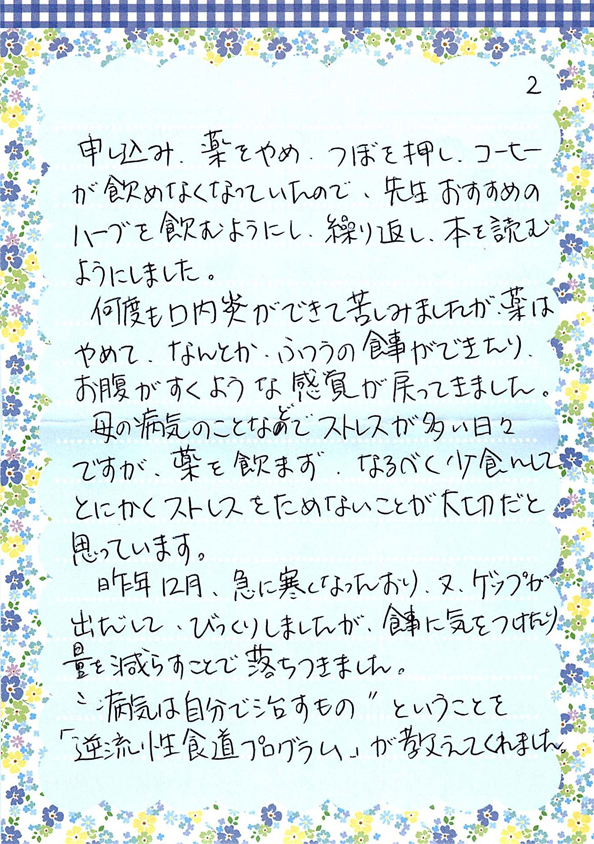 2
申し込み、薬をやめ、つぼを押し、コーヒー
が飲めなくなっていたので、先生おすすめの
ハーブを飲むようにし、繰り返し、本を読む
ようにしました。
何度も口内炎ができて苦しみましたが、薬は
やめて、なんとか、ふつうの食事ができたり、
お腹がすくような感覚が戻ってきました。
母の病気のことなどでストレスが多い日々
ですが、薬を飲まず、なるべく少食にして
とにかくストレスをためないことが大切だと
思っています。
昨年12月、急に寒くなったおり、又、ゲップが
出だして、びっくりしましたが、食事に気をつけたり
量を減らすことで落ちつきました。
〝病気は自分で治すもの〟ということを
「逆流性食道プログラム」が教えてくれました。